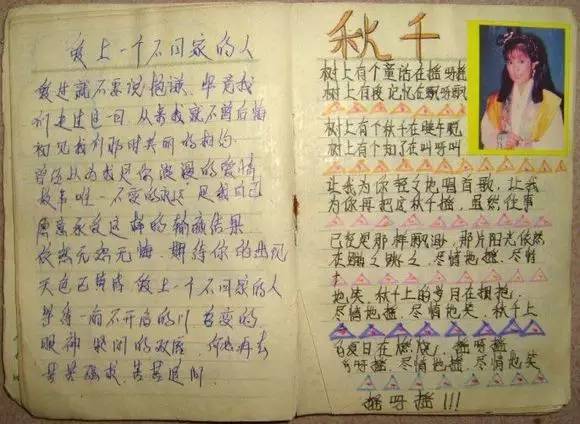 爱上一个不回家的人
爱过就不要说抱谦，毕竟我
们走过这一回，从来我就不曾后悔
初见我们那时共同的相约
曾经以为我是你浪漫的爱情
故事唯一不变的永远，是我自己
愿意承受这样的输赢结果
依然无怨无悔，期待你的出现
天色已黄昏，爱上一个不回家的人
等待一扇不开启的门，善变的
眼神，紧闭的双唇，何必再去
苦苦强求，苦苦追问。
秋千
树上有个童话在摇呀摇
树上有段记忆在飘呀飘
树上有个秋千在
树上有个知了在叫呀叫
让我为你轻轻地唱首歌，让我
为你再把这秋千摇，虽然往事
已经是那样飘渺，那片阳光依然
在 尽情地摇，尽情
地笑，秋千上的岁月在拥抱，
尽情地摇，尽情地笑，秋千上
的夏日在燃烧，摇呀摇
摇呀摇，尽情地摇，尽情地笑
摇呀摇!!!